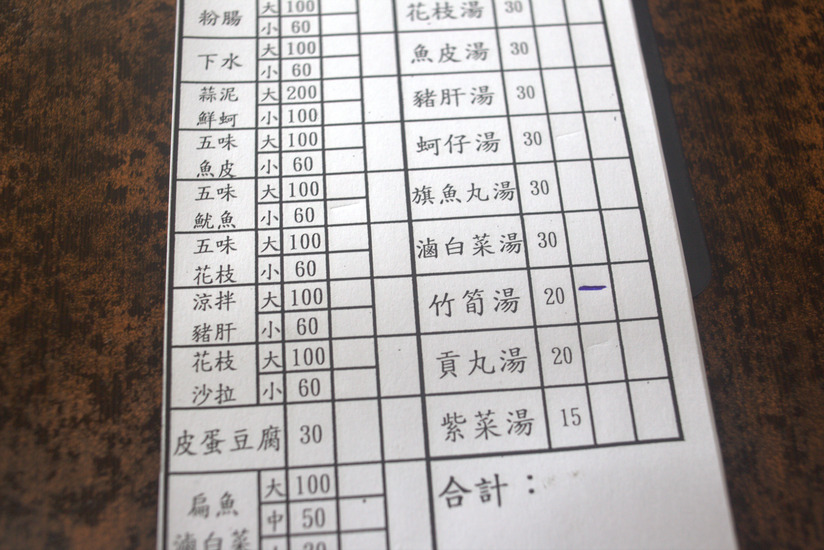 粉腸 大 100
小 60
下水 大 100
小 60
蒜泥 大 200
鮮蚵 小 100
五味 大 100
魚皮 小 60
五味 大 100
魷魚 小 60
五味 大 100
花枝 小 60
涼拌 大 100
豬肝 小 60
花枝 大 100
沙拉 小 60
皮蛋豆腐 30
扁魚 大 100
中 50
滷白菜
花枝湯 30
魚皮湯 30
豬肝湯 30
蚵仔湯 30
旗魚丸湯 30
滷白菜湯 30
竹筍湯 20
貢丸湯 20
紫菜湯 15
合計：